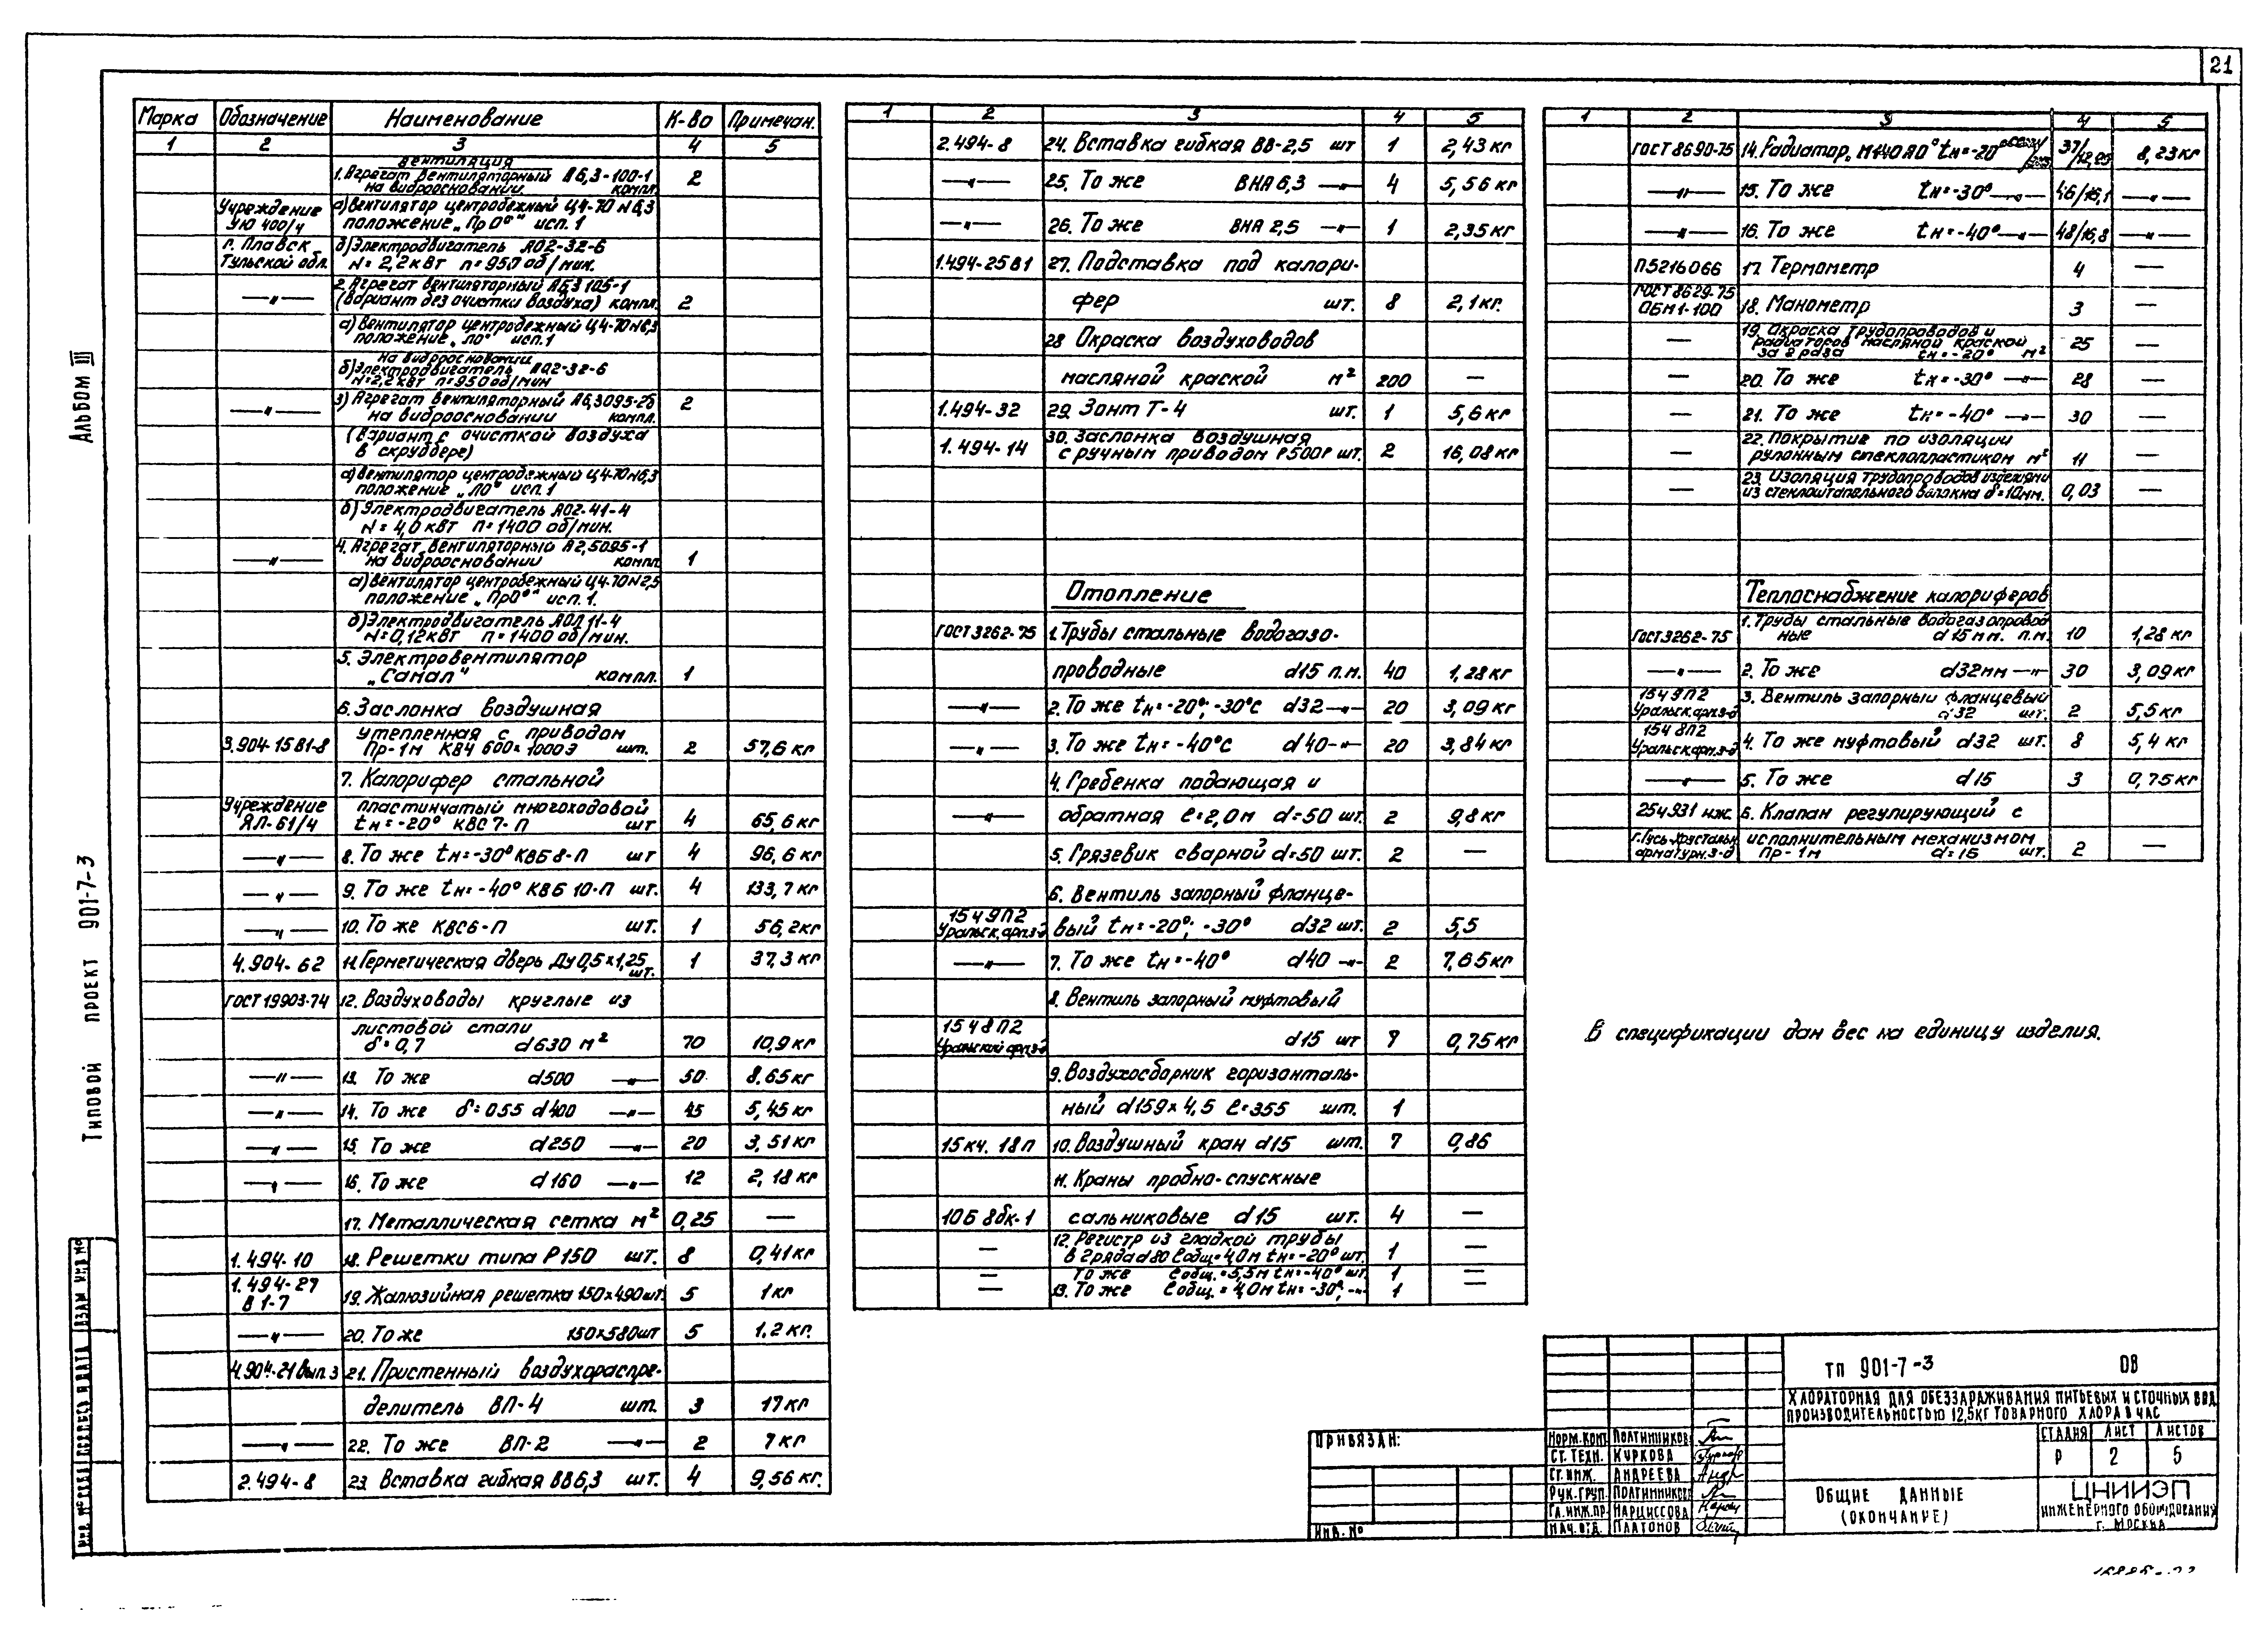 21
Альбом III
Типовой проект 901-7-3
Марка Обозначение Наименование К-во Примечан.
1 2 3 4 5
Вентиляция
1. Агрегат вентиляторный А6,3-100-1
на виброосновании компл. 2
Учреждение а) Вентилятор центробежный Ц4-70 №6,3
УЮ 400/4 положение „Пр 0°" исп. 1
г. Плавск б) Электродвигатель АО2-32-6
Тульской обл. N=2,2 кВт n=950 об/мин.
2. Агрегат вентиляторный А6,3 105-1
—"— (вариант без очистки воздуха) компл. 2
а) Вентилятор центробежный Ц4-70 №6,3
положение „Л0°" исп. 1
на виброосновании
б) Электродвигатель АО2-32-6
N=2,2 кВт n=950 об/мин
3) Агрегат вентиляторный А6,3095-2б
—"— на виброосновании компл. 2
(вариант с очисткой воздуха
в скруббере)
а) Вентилятор центробежный Ц4-70 №6,3
положение „Л0°" исп. 1
б) Электродвигатель АО2-41-4
N=4,0 кВт n=1400 об/мин.
4. Агрегат вентиляторный А2,5095-1
—"— на виброосновании компл. 1
а) Вентилятор центробежный Ц4-70 №2,5
положение „Пр0°" исп. 1.
б) Электродвигатель АОЛ 11-4
N=0,12 кВт n=1400 об/мин.
5. Электровентилятор
„Самал" компл. 1
6. Заслонка воздушная
утепленная с приводом
3.904-15 В1-8 Пр-1м КВЧ 600×1000 Э шт. 2 57,6 кг
7. Калорифер стальной
Учреждение пластинчатый многоходовой
ЯЛ-61/4 tн=-20° КВС 7-П шт 4 65,6 кг
—"— 8. То же tн=-30° КВБ 8-П шт 4 96,6 кг
—"— 9. То же tн=-40° КВБ 10-П шт. 4 133,7 кг
—"— 10. То же КВС6-П шт. 1 56,2 кг
4.904-62 11. Герметическая дверь Ду 0,5×1,25 шт. 1 37,3 кг
ГОСТ 19903-74 12. Воздуховоды круглые из
листовой стали
δ=0,7 d630 м² 70 10,9 кг
—"— 13. То же d500 —"— 50 8.65 кг
—"— 14. То же δ=0.55 d400 —"— 45 5,45 кг
—"— 15. То же d250 —"— 20 3,51 кг
—"— 16. То же d160 —"— 12 2,18 кг
17. Металлическая сетка м² 0,25 —
1.494-10 18. Решетки типа Р150 шт. 8 0,41 кг
1.494-27
В 1-7 19. Жалюзийная решетка 150×490 шт. 5 1 кг
—"— 20. То же 150×580 шт 5 1.2 кг.
4.904-21 вып.3 21. Пристенный воздухораспре-
делитель ВП-4 шт. 3 17 кг
—"— 22. То же ВП-2 —"— 2 7 кг
2.494-8 23. Вставка гибкая ВВ6,3 шт. 4 9,56 кг.
1 2 3 4 5
2.494-8 24. Вставка гибкая ВВ-2,5 шт 1 2,43 кг
—"— 25. То же ВНА 6,3 —"— 4 5,56 кг
—"— 26. То же ВНА 2,5 —"— 1 2,35 кг
1.494-25 В1 27. Подставка под калори-
фер шт. 8 2,1 кг.
28 Окраска воздуховодов
масляной краской м² 200 —
1.494-32 29. Зонт Т-4 шт. 1 5,6 кг
1.494-14 30. Заслонка воздушная
с ручным приводом Р500Р шт. 2 16,08 кг
Отопление
ГОСТ 3262-75 1. Трубы стальные водогазо-
проводные d15 п.м. 40 1,28 кг
—"— 2. То же tн=-20°; -30°С d32 —"— 20 3,09 кг
—"— 3. То же tн=-40°С d40 —"— 20 3,84 кг
4. Гребенка подающая и
—"— обратная ℓ=2,0 м d=50 шт. 2 9,8 кг
5. Грязевик сварной d=50 шт. 2 —
6. Вентиль запорный фланце-
15ч 9П2
Уральск. арм.з-д вый tн=-20°; -30° d32 шт. 2 5,5
—"— 7. То же tн=-40° d40 —"— 2 7,65 кг
8. Вентиль запорный муфтовый
15ч 8П2
Уральский арм.з-д d15 шт 7 0,75 кг
9. Воздухосборник горизонталь-
ный d159×4,5 ℓ=355 шт. 1
15кч. 18п 10. Воздушный кран d15 шт. 7 0,86
11. Краны пробно-спускные
10Б 8бк-1 сальниковые d15 шт. 4 —
12. Регистр из гладкой трубы
— в 2 ряда d80 ℓобщ.=4,0м tн=-20° шт. 1 —
— То же ℓобщ.=5,5м tн=-40° шт. 1 —
— 13. То же ℓобщ.=4,0м tн=-30°, —"— 1
1 2 3 4 5
ГОСТ 8690-75 14. Радиатор М140АО tн=-20° 37/12,95 8,23 кг
—"— 15. То же tн=-30° —"— 46/16,1 —"—
—"— 16. То же tн=-40° —"— 48/16,8 —"—
П5216066 17. Термометр 4 —
ГОСТ 8629-75
ОБМ1-100 18. Манометр 3 —
19. Окраска трубопроводов и
— радиаторов масляной краской 25 —
за 2 раза tн=-20° м²
— 20. То же tн=-30° —"— 28 —
— 21. То же tн=-40° —"— 30 —
22. Покрытие по изоляции
— рулонным стеклопластиком м² 11 —
23. Изоляция трубопроводов изделиями
— из стеклоштапельного волокна δ=10мм. 0,03 —
Теплоснабжение калориферов
1. Трубы стальные водогазопровод
ГОСТ 3262-75 ные d15 мм. п.м. 10 1,28 кг
—"— 2. То же d32мм —"— 30 3,09 кг
15ч 9П2 3. Вентиль запорный фланцевый
Уральск. арм.з-д d32 шт. 2 5,5 кг
15ч 8П2
Уральск.арм.з-д 4. То же муфтовый d32 шт. 8 5,4 кг
—"— 5. То же d15 3 0,75 кг
25ч931 нж. 6. Клапан регулирующий с
г. Гусь-Хрустальн исполнительным механизмом
арматурн. з-д Пр-1м d=15 шт. 2 —
В спецификации дан вес на единицу изделия.
Привязан:
Инв. №
Норм.конт. Полтинников
Ст. техн. Куркова
Ст. инж. Андреева
Рук. груп. Полтинников
Гл.инж.пр. Нарциссова
Нач. отд. Платонов
ТП 901-7-3 ОВ
Хлораторная для обеззараживания питьевых и сточных вод
производительностью 12,5кг товарного хлора в час
Стадия Лист Листов
Р 2 5
Общие данные
(окончание)
ЦНИИЭП
инженерного оборудования
г. Москва
Взам. инв. №
Подпись и дата
Инв. № подл.